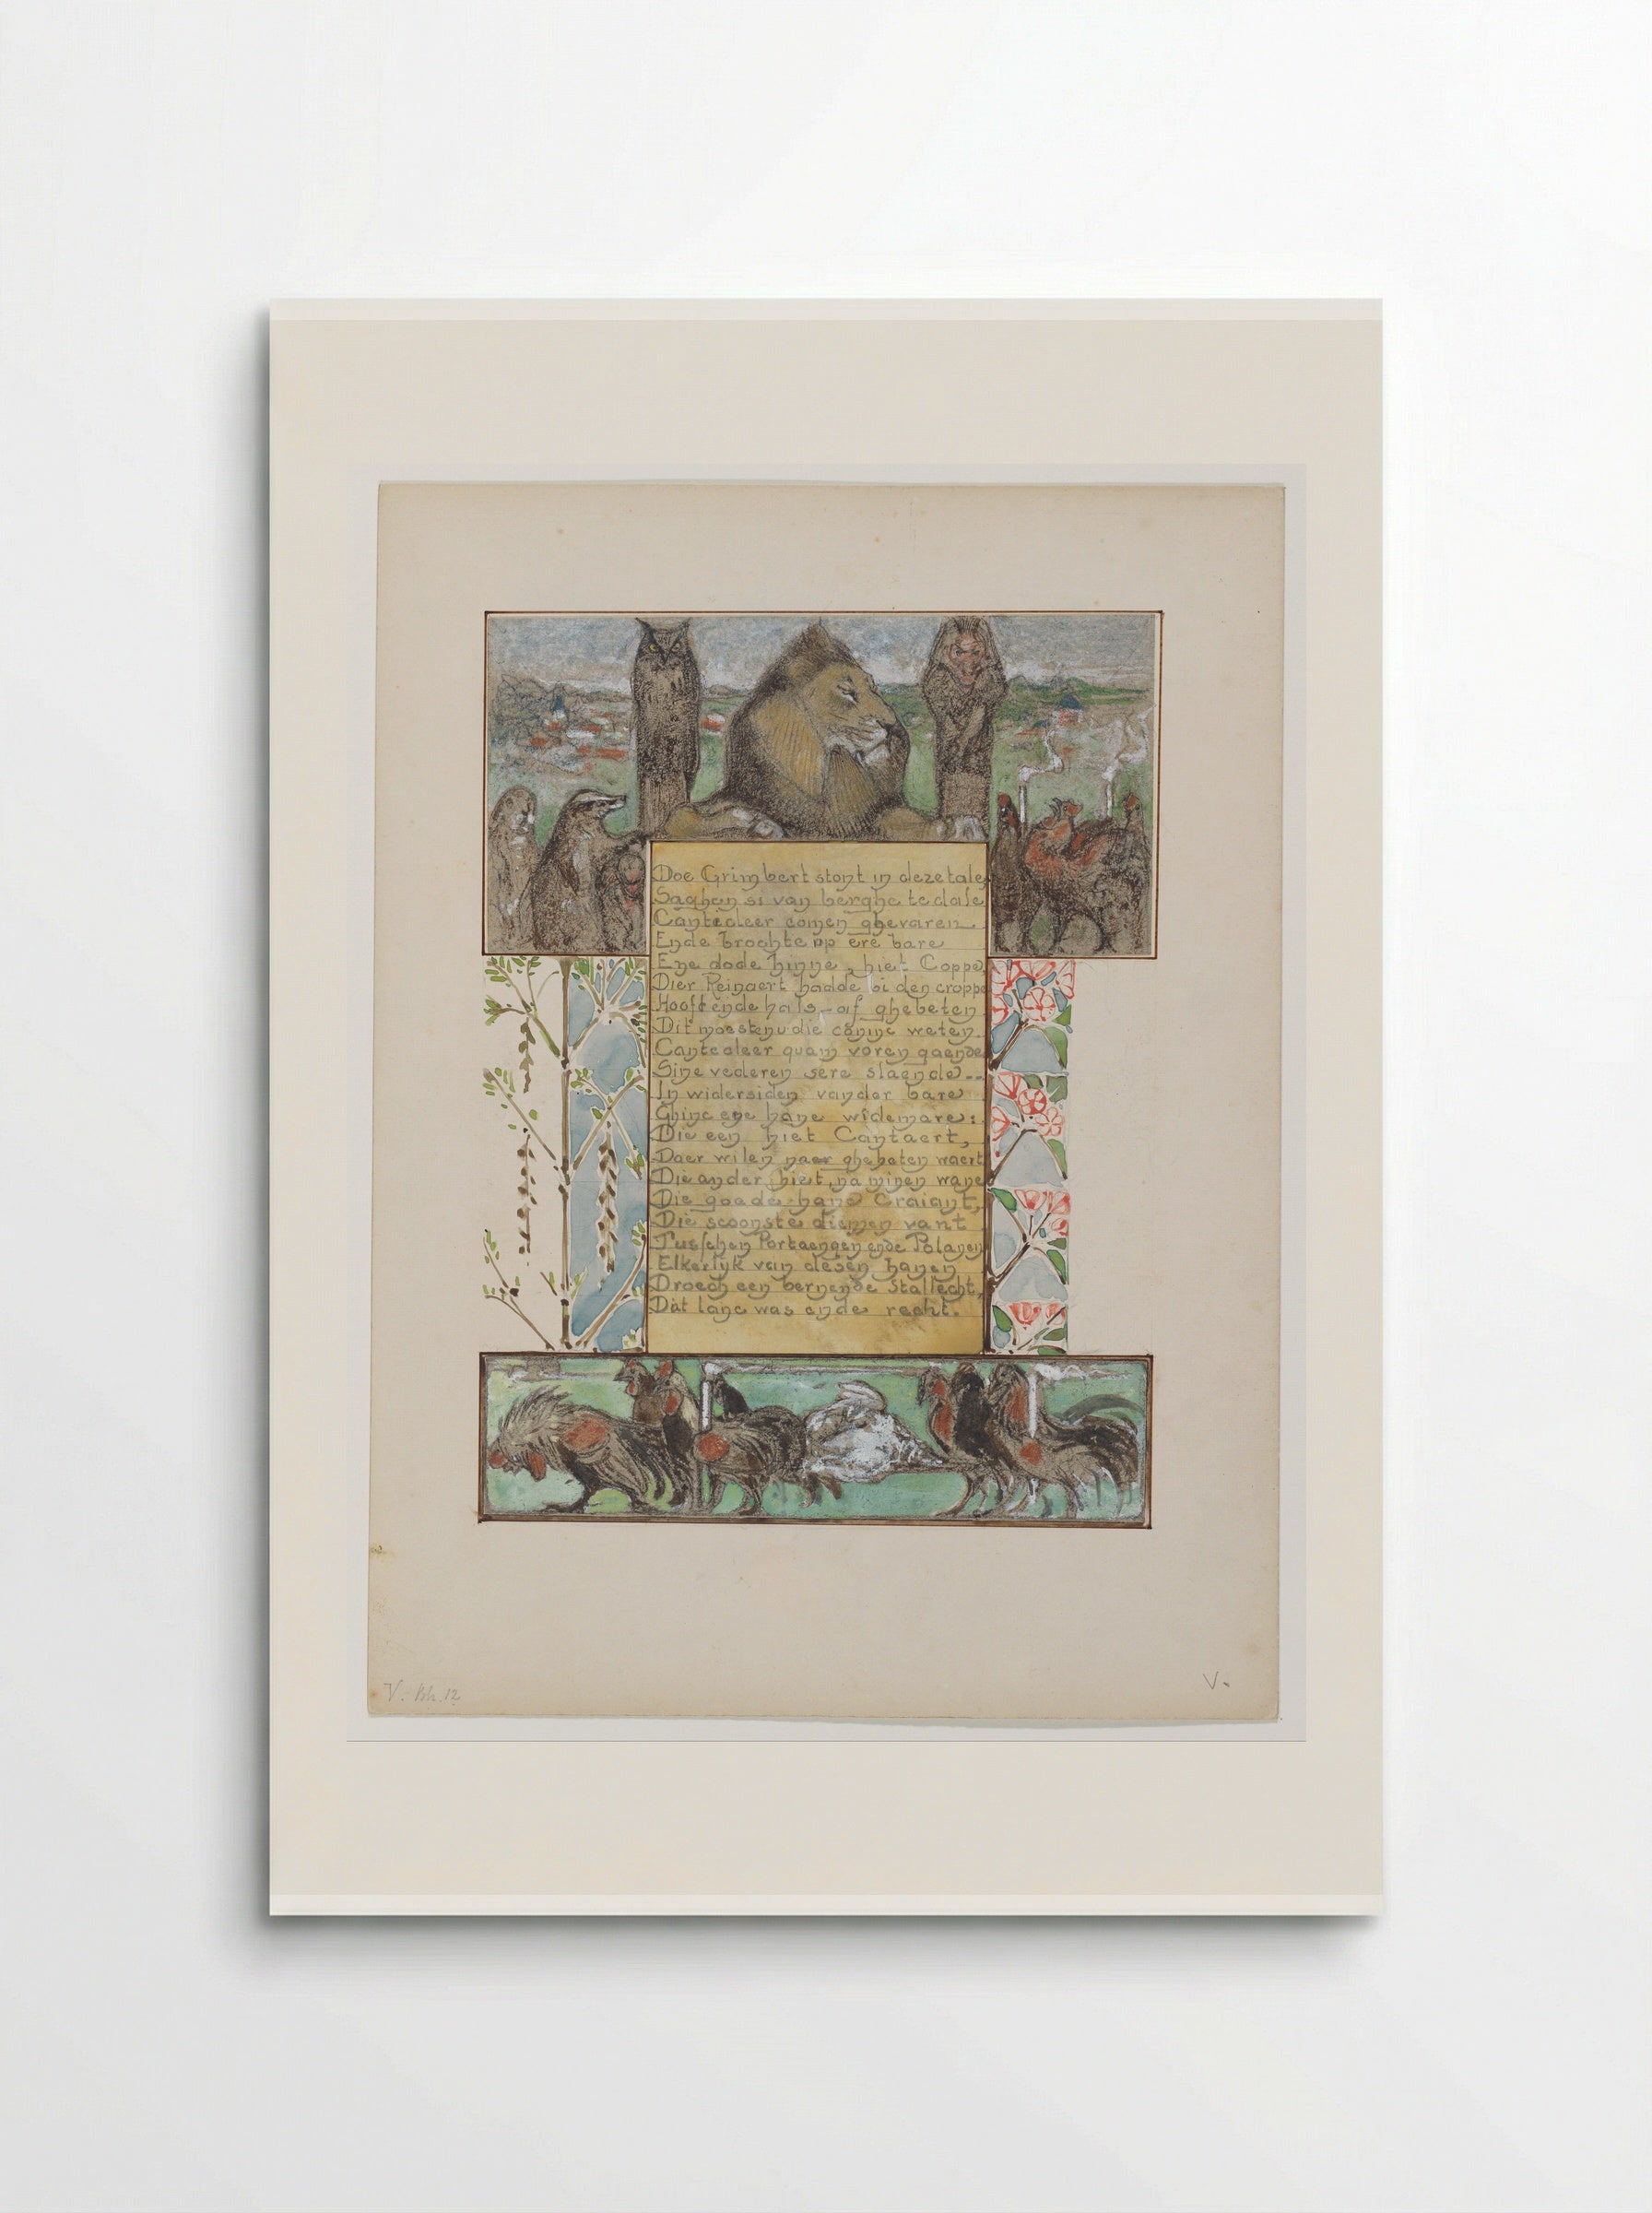 Doe Grimbert stont in deze tale
Saghen si van berghe te dale
Canticleer comen ghevaren
Ende brochte op ere bare
Ene dode hinne, hiet Coppe
Dier Reinaert hadde bi den croppe
Hooft ende hals af ghebeten
Dit moeste nu die coninc weten.
Cantecleer quam voren gaende
Sine vederen sere slaende--
In widersiden vander bare
Ghinc ene hane widemare:
Die een hiet Cantaert,
Daer wilen naer ghebeten waert
Die ander hiet, na minen wane
Die goede hane Craiant,
Die scoonste diemen vant
Tusschen Portaengen ende Polanen
Elkerlyk van desen hanen
Droech een bernende Stallecht,
Dat lanc was ende recht.
V. Bh. 12
V.